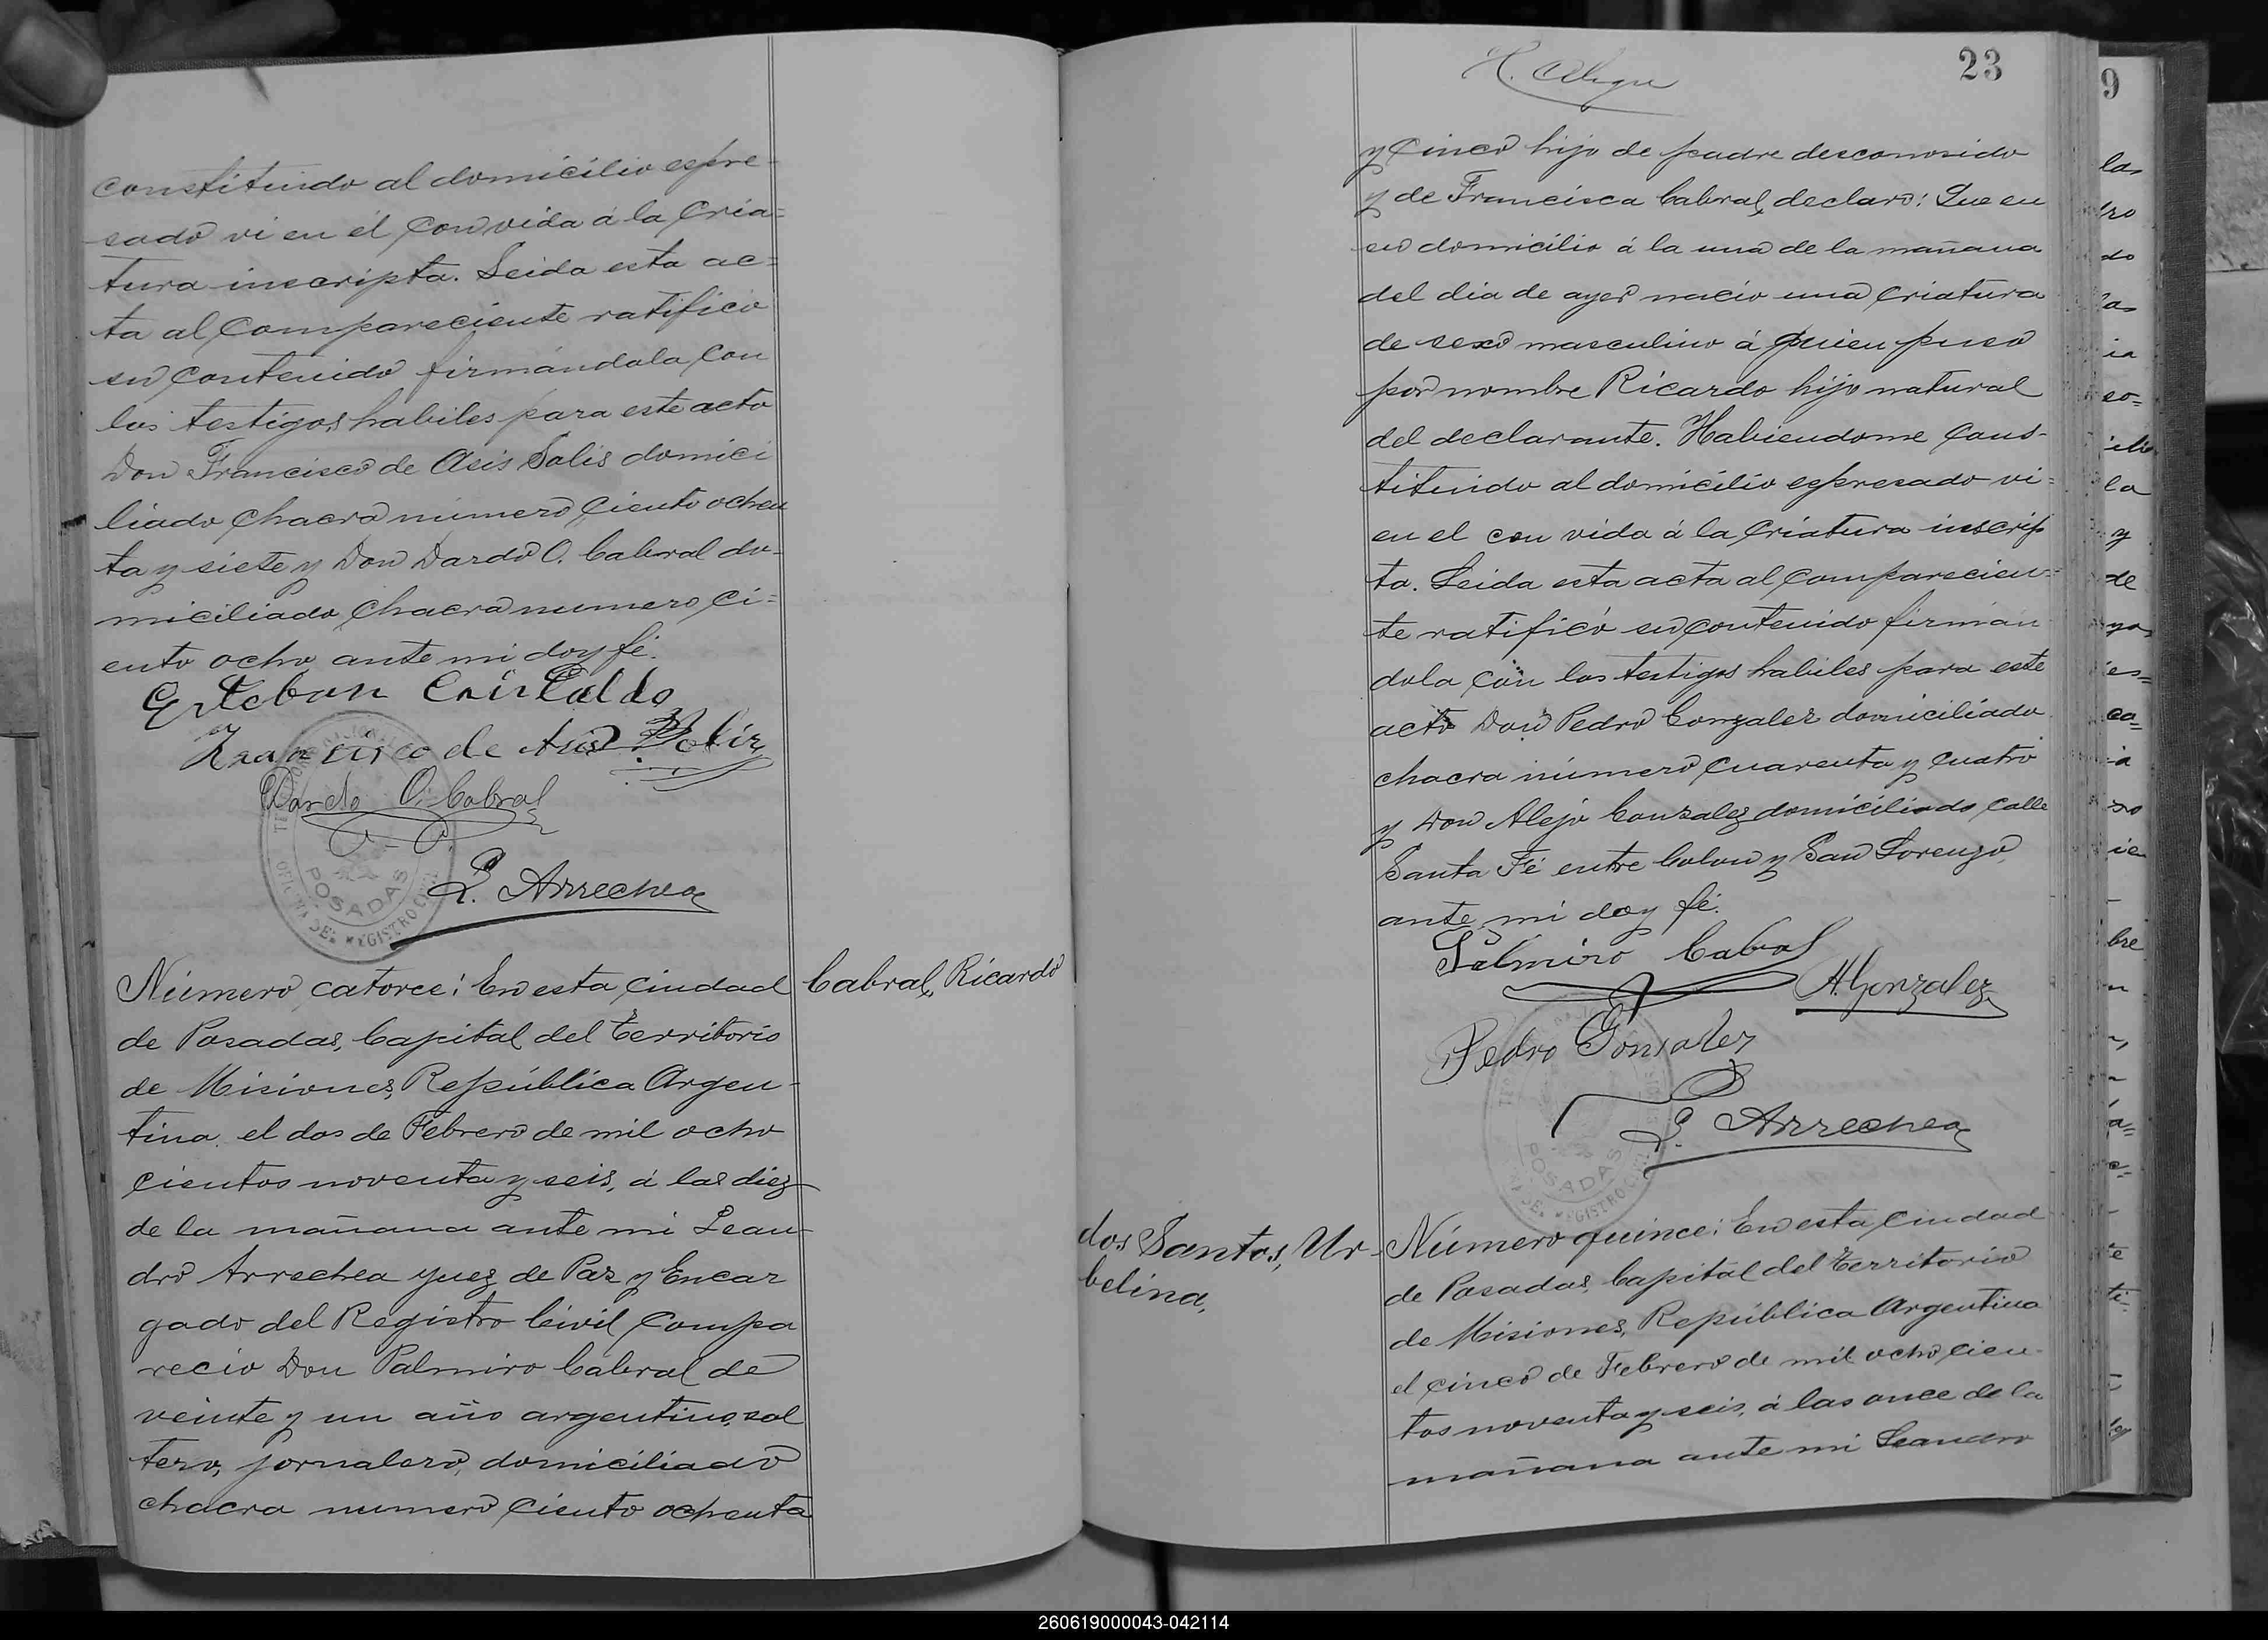 constituido al domicilio espre-
sado vi en él con vida á la cria=
tura inscripta. Leida esta ac=
ta al compareciente ratificó
su contenido firmándola con
los testigos habiles para este acto
Don Francisco de Asis Solis domici
liado chacra número ciento ochen
ta y siete y Don Dardo O. Cabral do-
miciliado chacra numero ci=
ento ocho ante mi doy fé.
Esteban Cristaldo
Francisco de Asis Solis
Dardo O. Cabral
POSADAS
REGISTRO CIVIL
L. Arrechea
Cabral, Ricardo
Número catorce: En esta ciudad
de Posadas, Capital del Territorio
de Misiones, República Argen-
tina el dos de Febrero de mil ocho
cientos noventa y seis, á las diez
de la mañana ante mi Lean-
dro Arrechea Juez de Paz y Encar
gado del Registro Civil compa
recio Don Palmiro Cabral de
veinte y un año argentino, sol
tero, jornalero, domiciliado
chacra numero ciento ochenta
23
y cinco hijo de padre desconosido
y de Francisca Cabral, declaro: Que en
su domicilio á la una de la mañana
del dia de ayer nacio una criatura
de sexo masculino á quien puso
por nombre Ricardo hijo natural
del declarante. Habiendome cons-
tituido al domicilio espresado vi=
en el con vida á la criatura inscrip
ta. Leida esta acta al comparecien=
te ratificó su contenido firman
dola con los testigos habiles para este
acto Don Pedro Gonzalez domiciliado
chacra número cuarenta y cuatro
y Don Alejo Gonzalez domiciliado calle
Santa Fé entre Colon y San Lorenzo
ante mi doy fé.
Palmiro Cabral
A. Gonzalez
Pedro Gonzalez
POSADAS
REGISTRO CIVIL
L. Arrechea
dos Santos, Ur-
belina,
Número quince: En esta ciudad
de Posadas, Capital del Territorio
de Misiones, República Argentina
el cinco de Febrero de mil ocho cien
tos noventa y seis, á las once de la
mañana ante mi Leandro
9
260619000043-042114